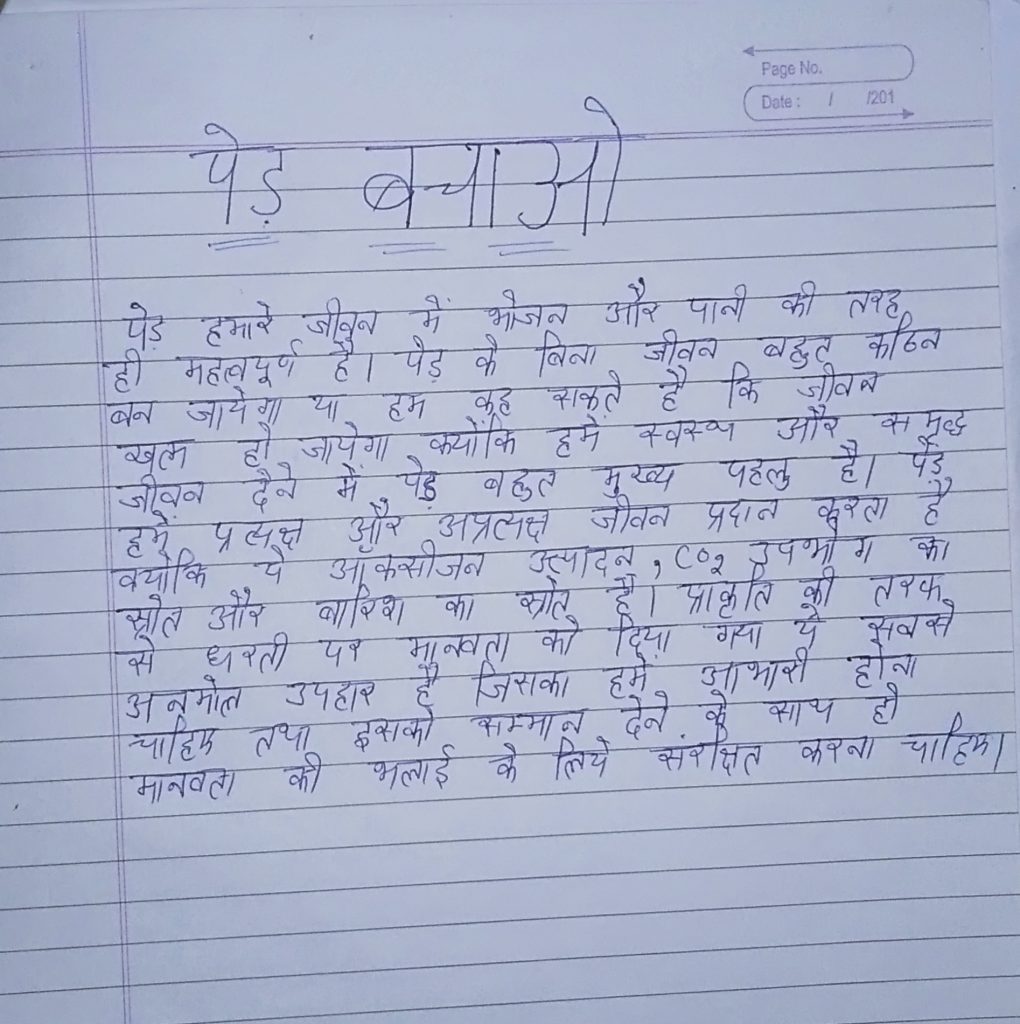 Page No.
Date : / /201
पेड़ बचाओ
पेड़ हमारे जीवन में भोजन और पानी की तरह
ही महत्वपूर्ण है। पेड़ के बिना जीवन बहुत कठिन
बन जायेगा या हम कह सकते है कि जीवन
खत्म हो जायेगा क्योंकि हमें स्वस्थ और समृद्ध
जीवन देने में पेड़ बहुत मुख्य पहलु है। पेड़
हमें प्रत्यक्ष और अप्रत्यक्ष जीवन प्रदान करता है
क्योंकि ये ऑक्सीजन उत्पादन, CO2 उपभोग का
स्रोत और बारिश का स्रोत है। प्राकृति की तरफ
से धरती पर मानवता को दिया गया ये सबसे
अनमोल उपहार है जिसका हमें आभारी होना
चाहिए तथा इसको सम्मान देने के साथ ही
मानवता की भलाई के लिये संरक्षित करना चाहिए।